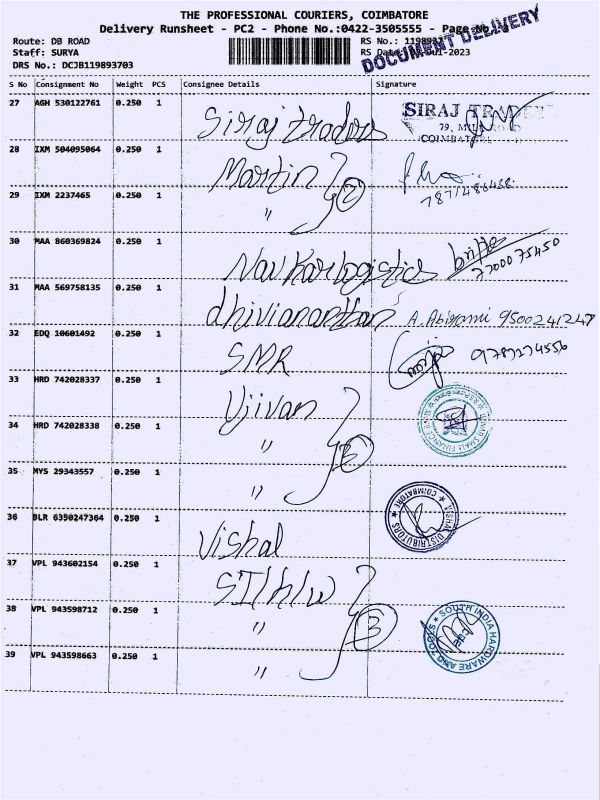 THE PROFESSIONAL COURIERS, COIMBATORE
Delivery Runsheet - PC2 - Phone No.:0422-3505555 - Page No.
DOCUMENT DELIVERY
Route: DB ROAD
RS No.:
Staff: SURYA
RS Date: Jul-2023
DRS No.: DCJB119893703
S No Consignment No Weight PCS Consignee Details Signature
27 AGH 530122761 0.250 1 Siraj traders SIRAJ TRADE
79, MILL ROAD
COIMBATORE
28 IXM 504095064 0.250 1 Martin 2
29 IXM 2237465 0.250 1 "
30 MAA 860369824 0.250 1 Navkar logistics
31 MAA 569758135 0.250 1 dhiviananthan A. Abirami 9500241247
32 EDQ 10601492 0.250 1 SMR
33 HRD 742028337 0.250 1 Ujivan
34 HRD 742028338 0.250 1 "
35 MYS 29343557 0.250 1 "
36 BLR 6350247364 0.250 1 Vishal VISHAL DISTRIBUTORS COIMBATORE
37 VPL 943602154 0.250 1 STI h/w 3
38 VPL 943598712 0.250 1 " SOUTH INDIA HARDWARE AND TOOLS CBE
39 VPL 943598663 0.250 1 "